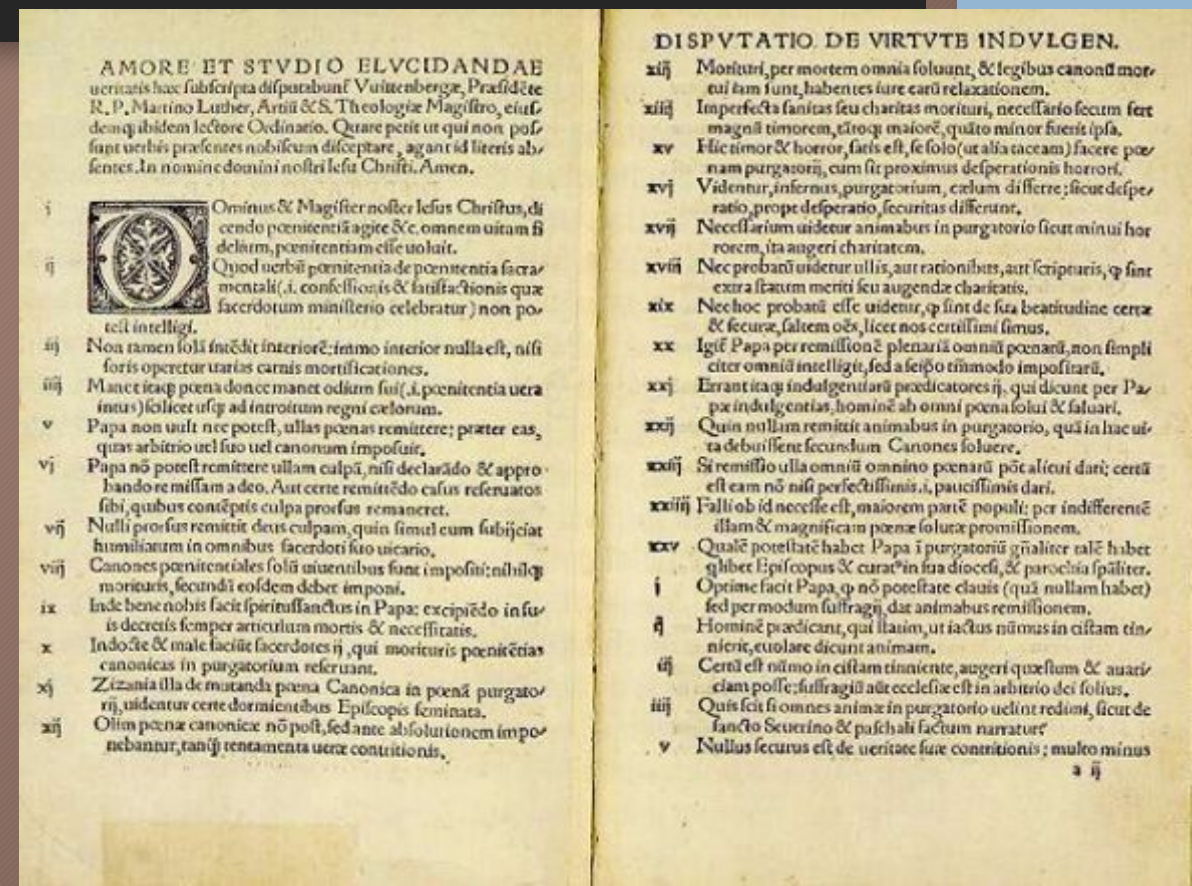 AMORE ET STVDIO ELVCIDANDAE
ueritatis hæc ſubſcripta diſputabunt̃ Vuittenbergæ, Præſidẽte
R. P. Martino Luther, Artiũ & S. Theologiæ Magiſtro, eiuſ-
demq; ibidem lectore Ordinario. Quare petit ut qui non poſ-
ſunt uerbis præſentes nobiſcum diſceptare, agant id literis ab-
ſentes. In nomine domini noſtri Ieſu Chriſti. Amen.
i DOminus & Magiſter noſter Ieſus Chriſtus, di
cendo pœnitentiã agite &c. omnem uitam fi
delium, pœnitentiam eſſe uoluit.
ij Quod uerbũ pœnitentia de pœnitentia ſacra-
mentali (.i. confeſſionis & ſatiſfactionis quæ
ſacerdotum miniſterio celebratur) non po-
teſt intelligi.
iij Non tamen ſolã intẽdit interiorẽ: immo interior nulla eſt, niſi
foris operetur uarias carnis mortificationes.
iiij Manet itaq; pœna donec manet odium ſui (.i. pœnitentia uera
intus) ſcilicet uſq; ad introitum regni cælorum.
v Papa non uult nec poteſt, ullas pœnas remittere; præter eas,
quas arbitrio uel ſuo uel canonum impoſuit.
vj Papa nõ poteſt remittere ullam culpã, niſi declarãdo & appro-
bando remiſſam a deo. Aut certe remittẽdo caſus reſeruatos
ſibi, quibus contẽptis culpa prorſus remaneret.
vij Nulli prorſus remittit deus culpam, quin ſimul eum ſubijciat
humiliatum in omnibus ſacerdoti ſuo uicario.
viij Canones pœnitentiales ſolũ uiuentibus ſunt impoſiti; nihilq;
morituris, ſecundũ eoſdem debet imponi.
ix Inde bene nobis facit ſpirituſſanctus in Papa: excipiẽdo in ſu-
is decretis ſemper articulum mortis & neceſſitatis.
x Indocte & male faciũt ſacerdotes ij, qui morituris pœnitẽtias
canonicas in purgatorium reſeruant.
xj Zizania illa de mutanda pœna Canonica in pœnã purgato-
rij, uidentur certe dormientibus Epiſcopis ſeminata.
xij Olim pœnæ canonicæ nõ poſt, ſed ante abſolutionem impo-
nebantur, tanq̃ tentamenta ueræ contritionis.
DISPVTATIO DE VIRTVTE INDVLGEN.
xiij Morituri, per mortem omnia ſoluunt, & legibus canonũ mor-
tui iam ſunt, habentes iure earũ relaxationem.
xiiij Imperfecta ſanitas ſeu charitas morituri, neceſſario ſecum fert
magnũ timorem, tãtoq; maiorẽ, quãto minor fuerit ipſa.
xv Hic timor & horror, ſatis eſt, ſe ſolo (ut alia taceam) facere pœ-
nam purgatorij, cum ſit proximus deſperationis horrori.
xvj Videntur, infernus, purgatorium, cælum differre; ſicut deſpe-
ratio, prope deſperatio, ſecuritas differunt.
xvij Neceſſarium uidetur animabus in purgatorio ſicut minui hor
rorem, ita augeri charitatem.
xviij Nec probatũ uidetur ullis, aut rationibus, aut ſcripturis, ꝙ ſint
extra ſtatum meriti ſeu augendæ charitatis.
xix Nec hoc probatũ eſſe uidetur, ꝙ ſint de ſua beatitudine certæ
& ſecuræ, ſaltem oẽs, licet nos certiſſimi ſimus.
xx Igit̃ Papa per remiſſionẽ plenariã omniũ pœnarũ, non ſimpli
citer omniũ intelligit, ſed a ſeipſo tm̃modo impoſitarũ.
xxj Errant itaq; indulgentiarũ prædicatores ij, qui dicunt per Pa-
pæ indulgentias, hominẽ ab omni pœna ſolui & ſaluari.
xxij Quin nullam remittit animabus in purgatorio, quã in hac ui-
ta debuiſſent ſecundum Canones ſoluere.
xxiij Si remiſſio ulla omniũ omnino pœnarũ põt alicui dari; certũ
eſt eam nõ niſi perfectiſſimis .i. pauciſſimis dari.
xxiiij Falli ob id neceſſe eſt, maiorem partẽ populi: per indifferentẽ
illam & magnificam pœnæ ſolutæ promiſſionem.
xxv Qualẽ poteſtatẽ habet Papa ĩ purgatoriũ gñaliter talẽ habet
quilibet Epiſcopus & curatꝰ in ſua diocẽſi, & parochia ſpãliter.
j Optime facit Papa, ꝙ nõ poteſtate clauis (quã nullam habet)
ſed per modum ſuffragij, dat animabus remiſſionem.
ij Hominẽ prædicant, qui ſtatim, ut iactus nũmus in ciſtam tin-
nierit, euolare dicunt animam.
iij Certũ eſt nũmo in ciſtam tinniente, augeri quæſtum & auari-
ciam poſſe; ſuffragiũ aũt eccleſiæ eſt in arbitrio dei ſolius.
iiij Quis ſcit ſi omnes animæ in purgatorio uelint redimi, ſicut de
ſancto Seuerino & paſchali factum narratur?
v Nullus ſecurus eſt de ueritate ſuæ contritionis; multo minus
a ij